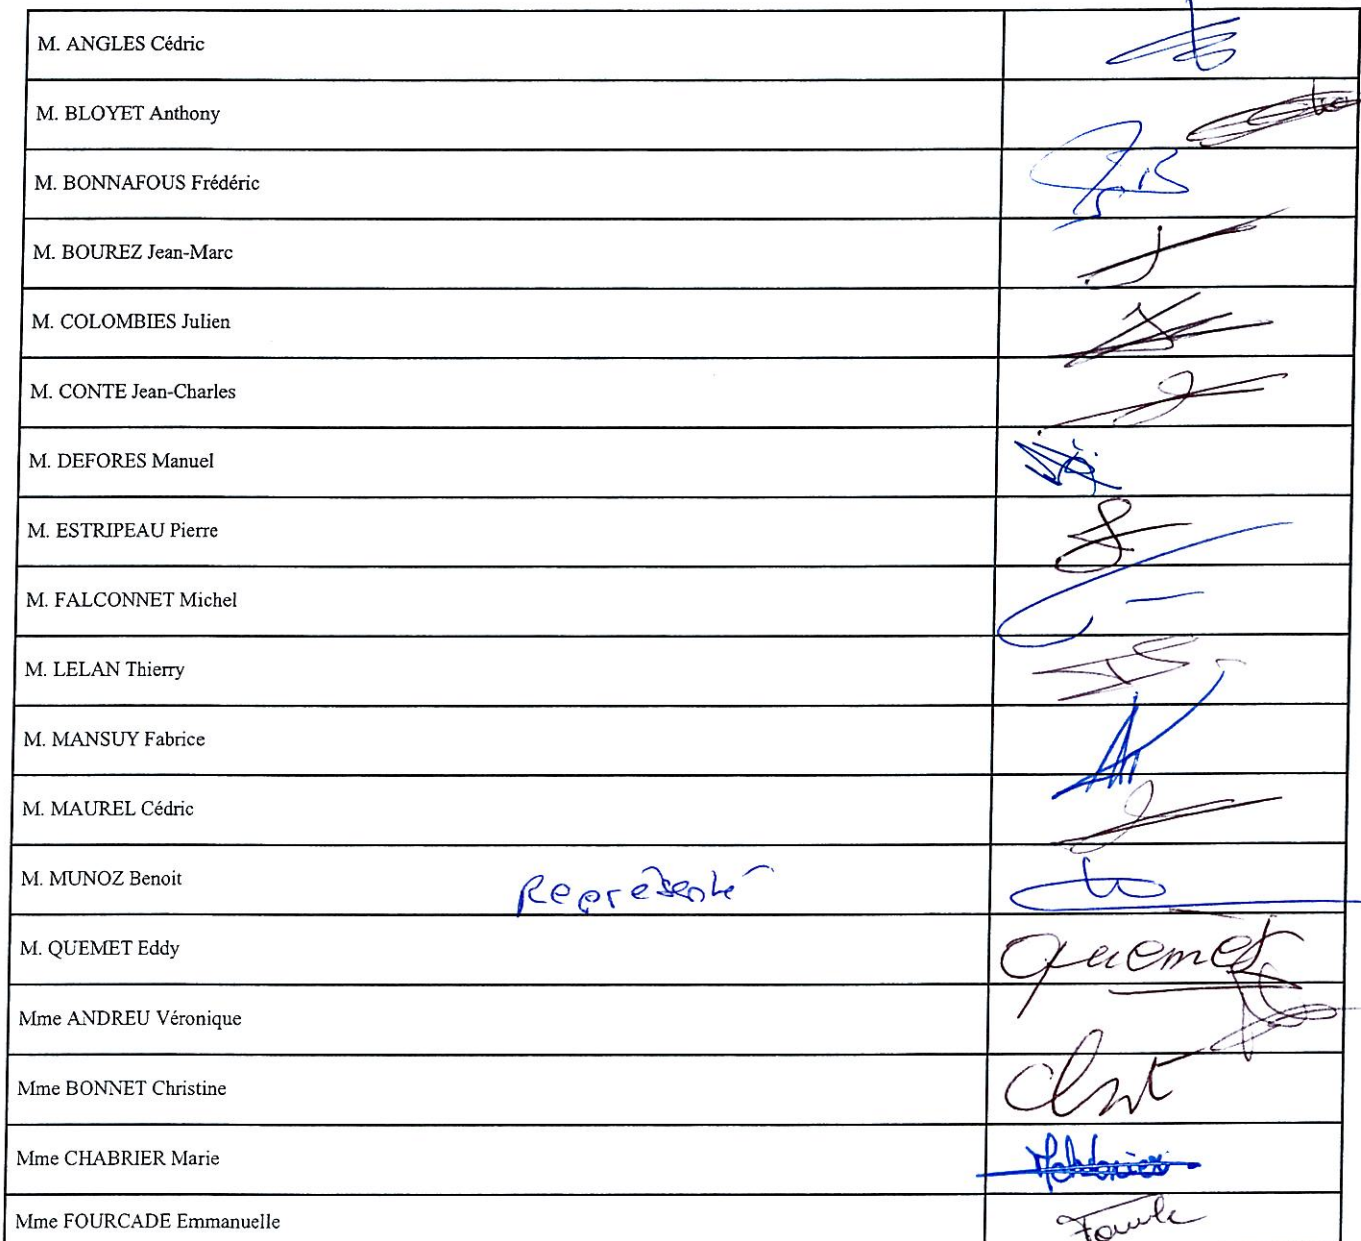 M. ANGLES Cédric
M. BLOYET Anthony
M. BONNAFOUS Frédéric
M. BOUREZ Jean-Marc
M. COLOMBIES Julien
M. CONTE Jean-Charles
M. DEFORES Manuel
M. ESTRIPEAU Pierre
M. FALCONNET Michel
M. LELAN Thierry
M. MANSUY Fabrice
M. MAUREL Cédric
M. MUNOZ Benoit Représenté
M. QUEMET Eddy Quemet
Mme ANDREU Véronique
Mme BONNET Christine
Mme CHABRIER Marie
Mme FOURCADE Emmanuelle